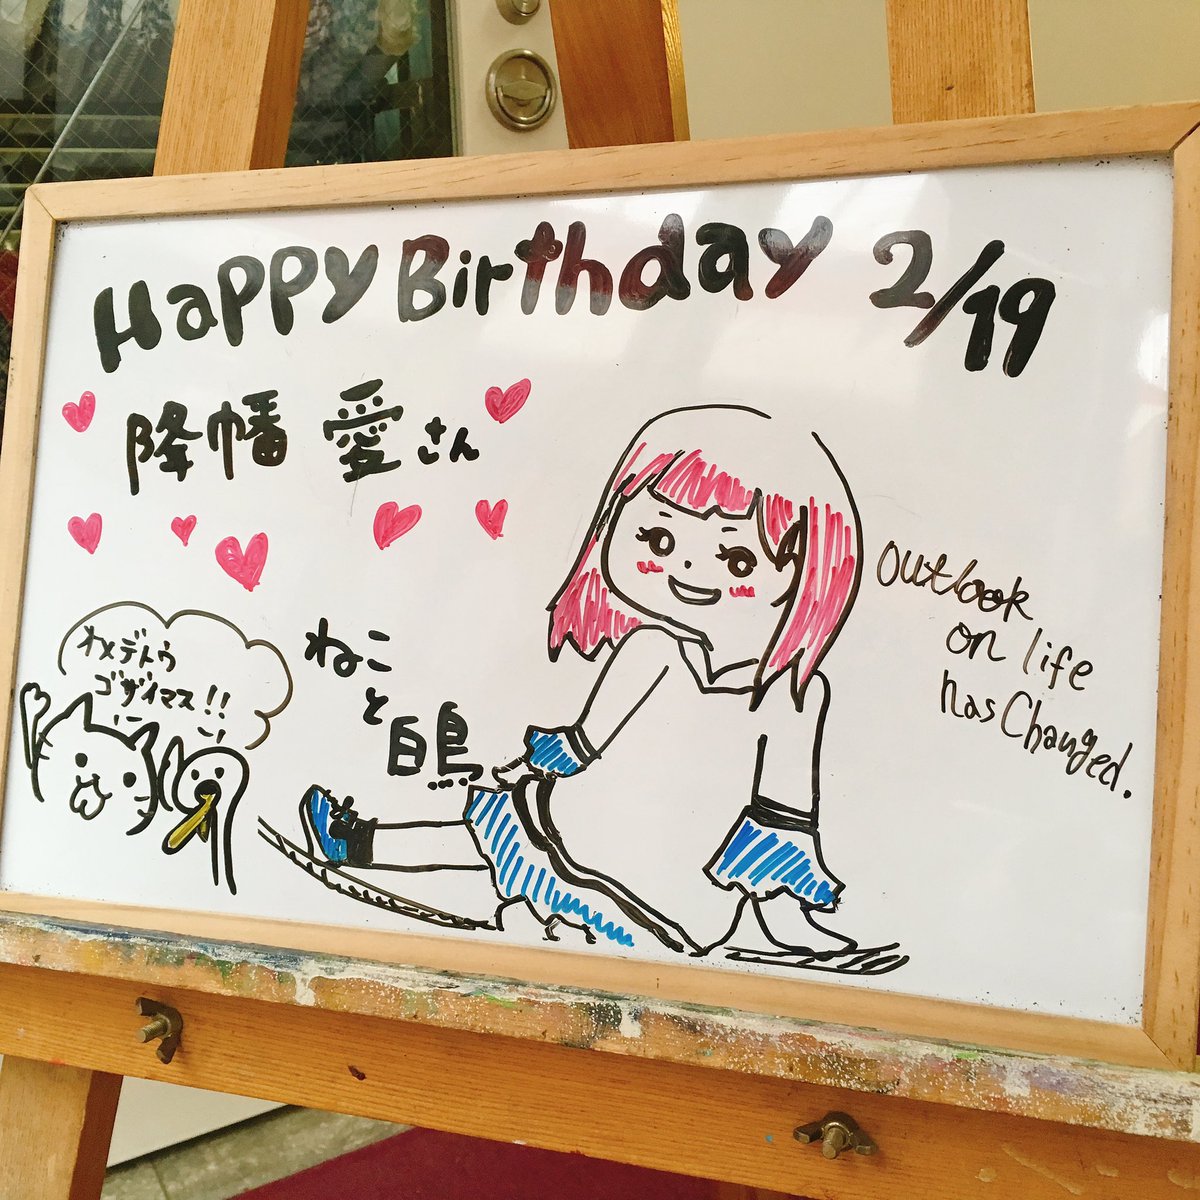 Happy Birthday 2/19
降幡 愛さん
オメデトウ
ゴザイマス!!
ねこ
と
白鳥
outlook
on life
has Changed.